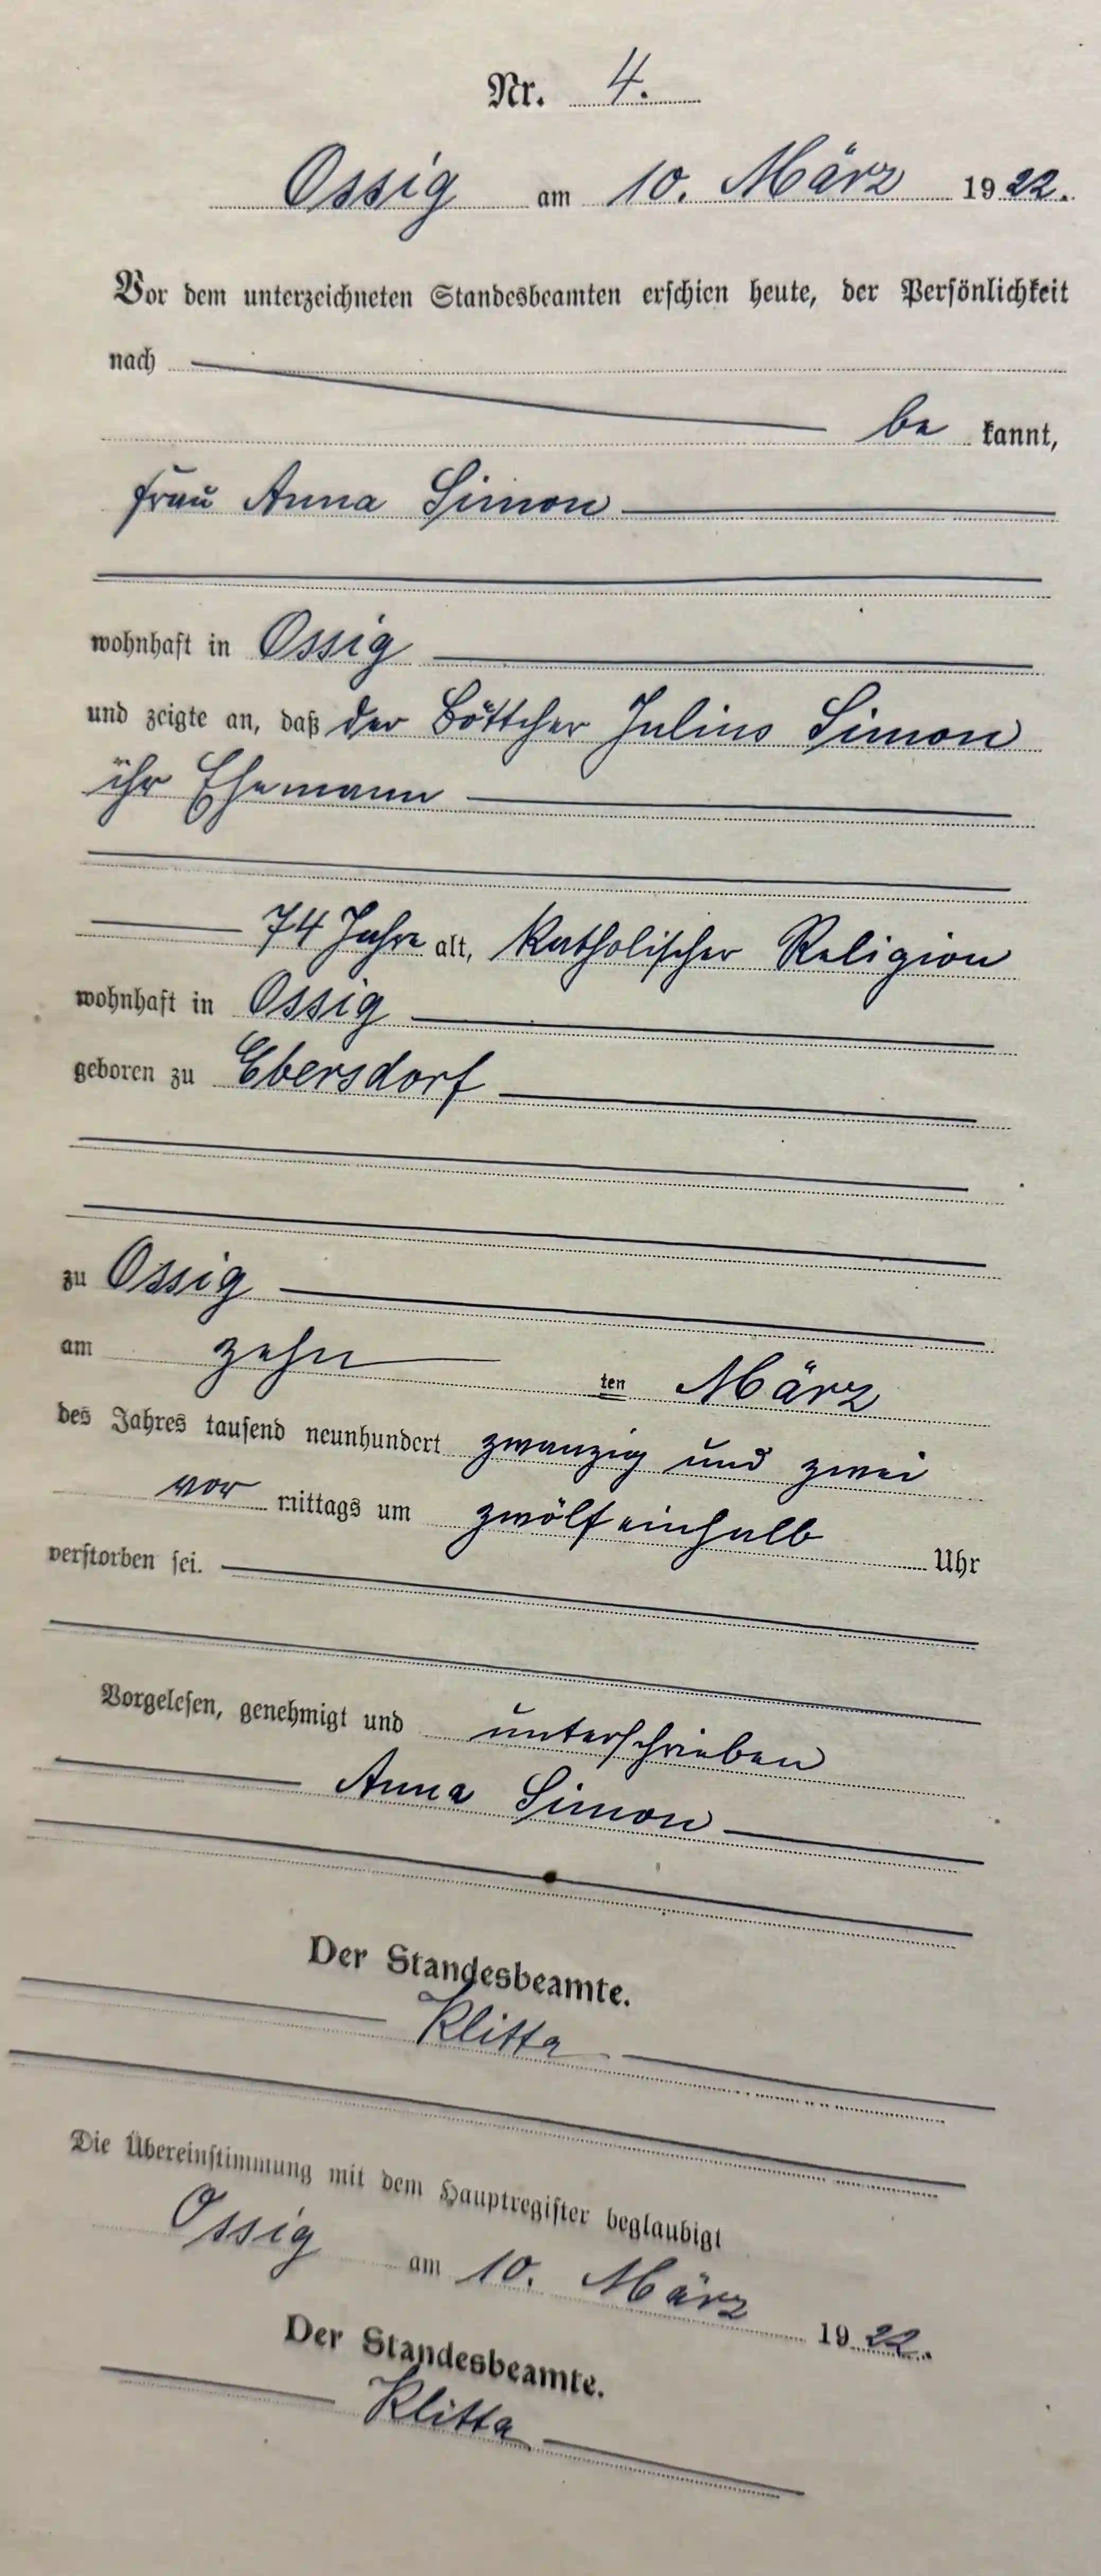 Nr. 4.
Ossig am 10. März 1922.
Vor dem unterzeichneten Standesbeamten erschien heute, der Persönlichkeit
nach
be kannt,
Frau Anna Simon
wohnhaft in Ossig
und zeigte an, daß der Böttcher Julius Simon
ihr Ehemann
74 Jahre alt, katholischer Religion
wohnhaft in Ossig
geboren zu Ebersdorf
zu Ossig
am zehn ten März
des Jahres tausend neunhundert zwanzig und zwei
vor mittags um zwölf einhalb Uhr
verstorben sei.
Vorgelesen, genehmigt und unterschrieben
Anna Simon
Der Standesbeamte.
Klitta
Die Übereinstimmung mit dem Hauptregister beglaubigt
Ossig am 10. März 1922.
Der Standesbeamte.
Klitta